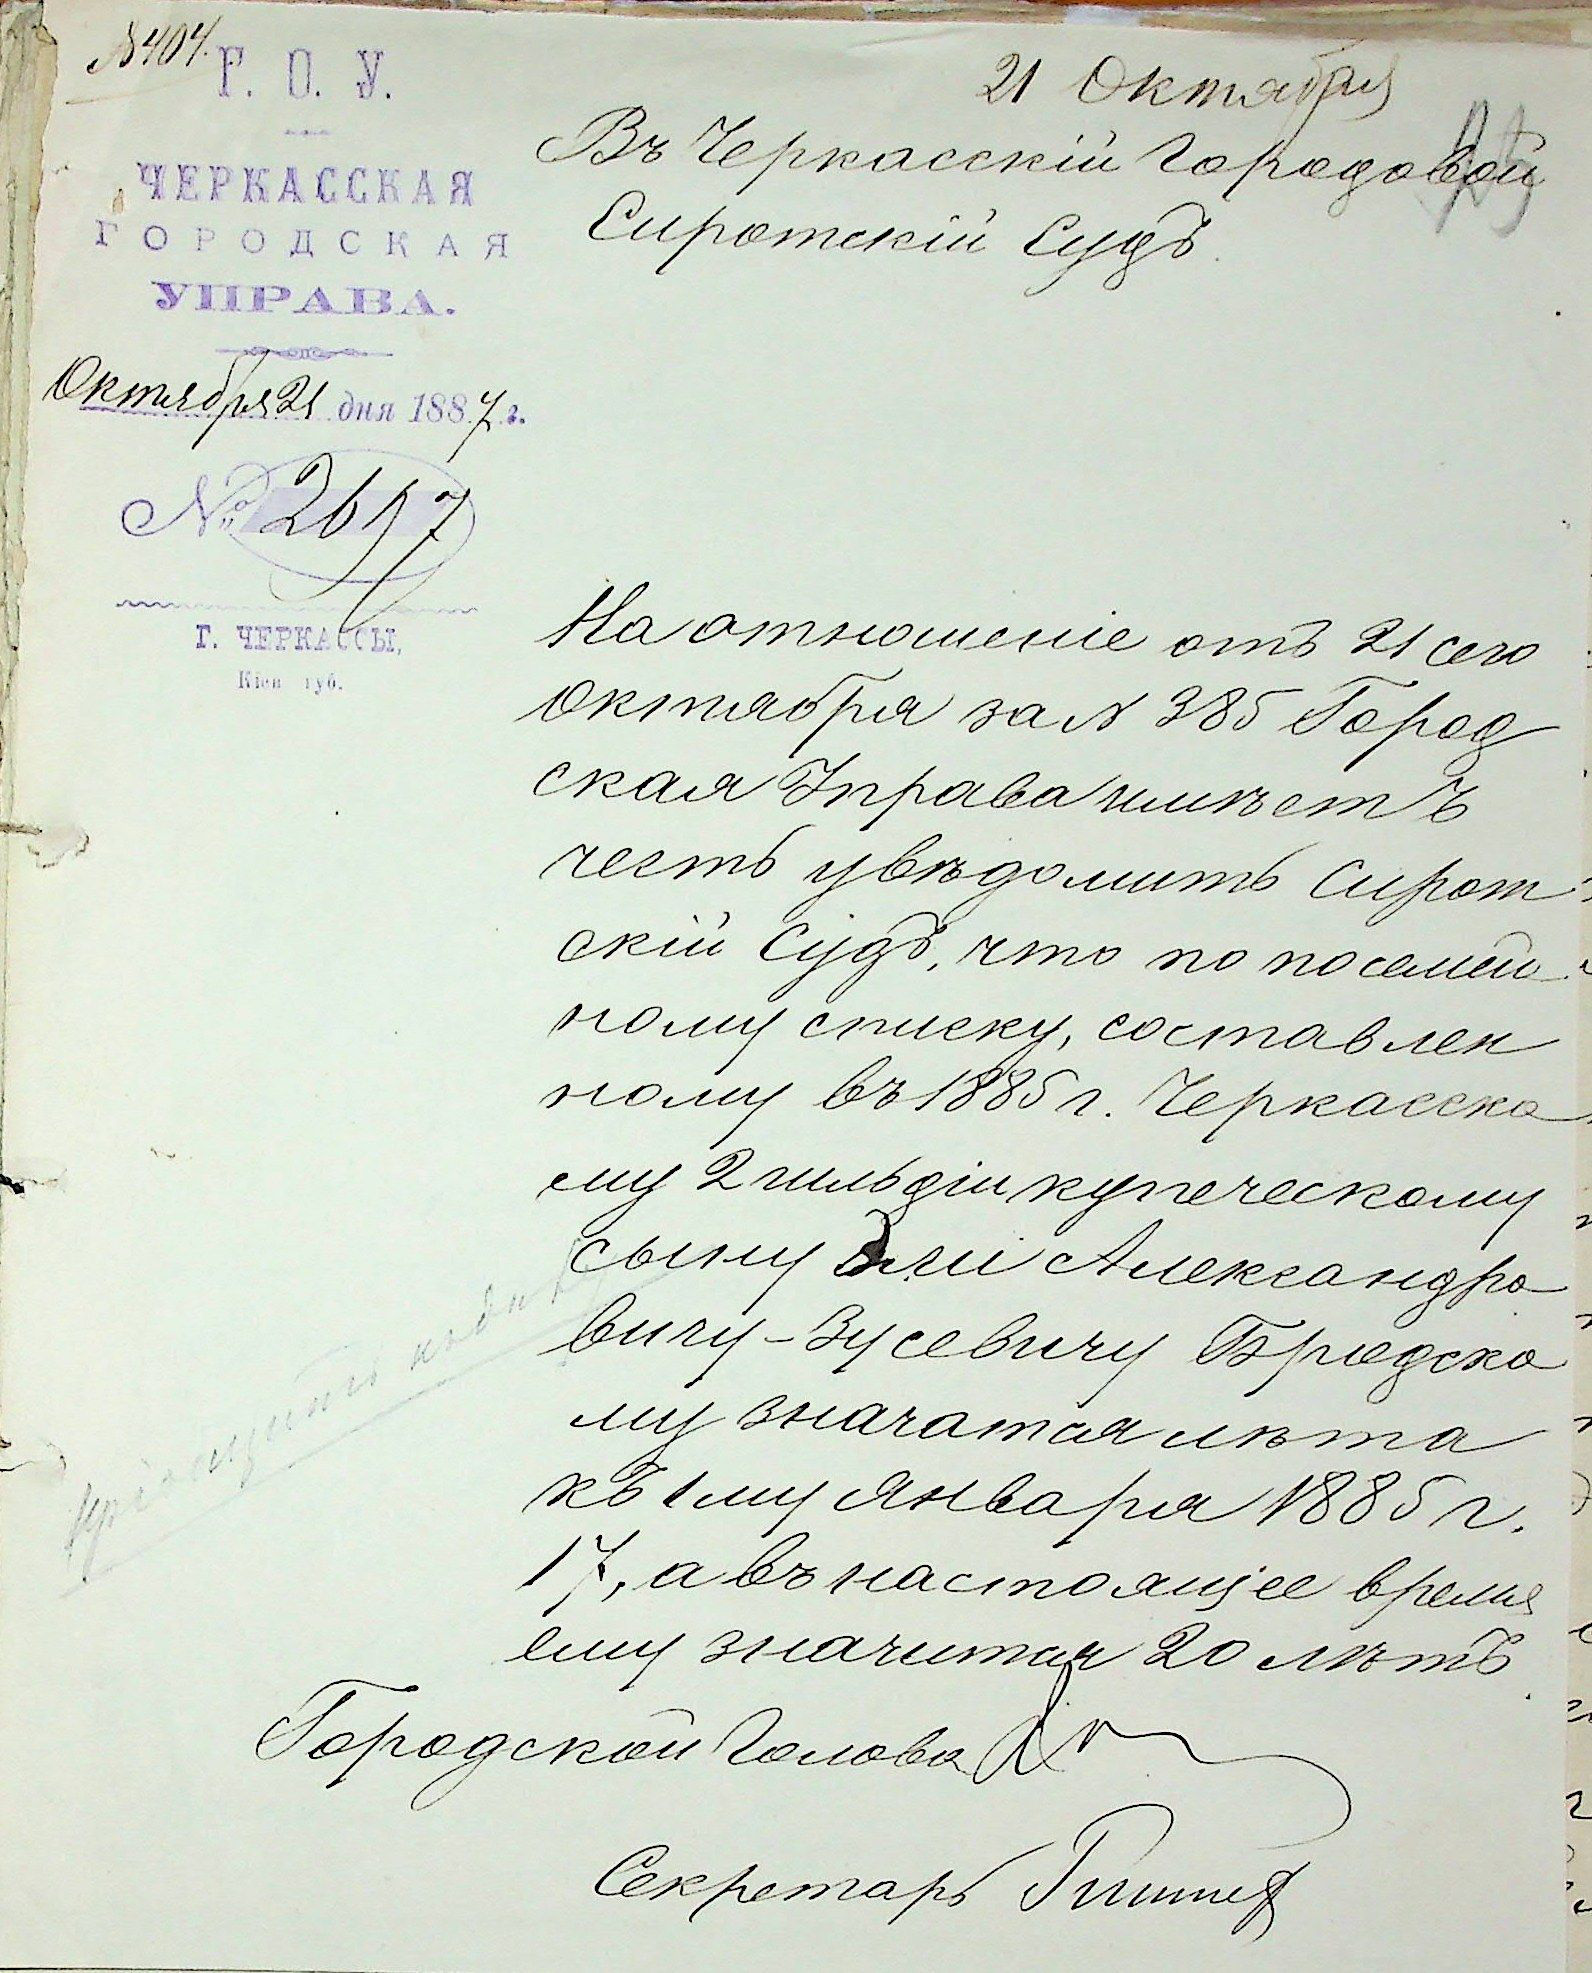 № 404.
Г. О. У.
ЧЕРКАССКАЯ
ГОРОДСКАЯ
УПРАВА.
Октября 21 дня 1887 г.
№ 2657
Г. ЧЕРКАССЫ,
Кіев. губ.
21 Октября
Въ Черкасскій Городовой
Сиротскій Судъ.
На отношеніе отъ 21 сего
Октября за № 385 Город
ская Управа имѣетъ
честь увѣдомить Сирот
скій Судъ, что по посемей
ному списку, составлен
ному въ 1885 г. Черкасско
му 2 гильдіи купеческому
сыну Александро
вичу-Зусевичу Бродско
му значатся лѣта
къ 1му Января 1885 г.
17, а въ настоящее время
ему значится 20 лѣтъ
Городской Голова
Секретарь